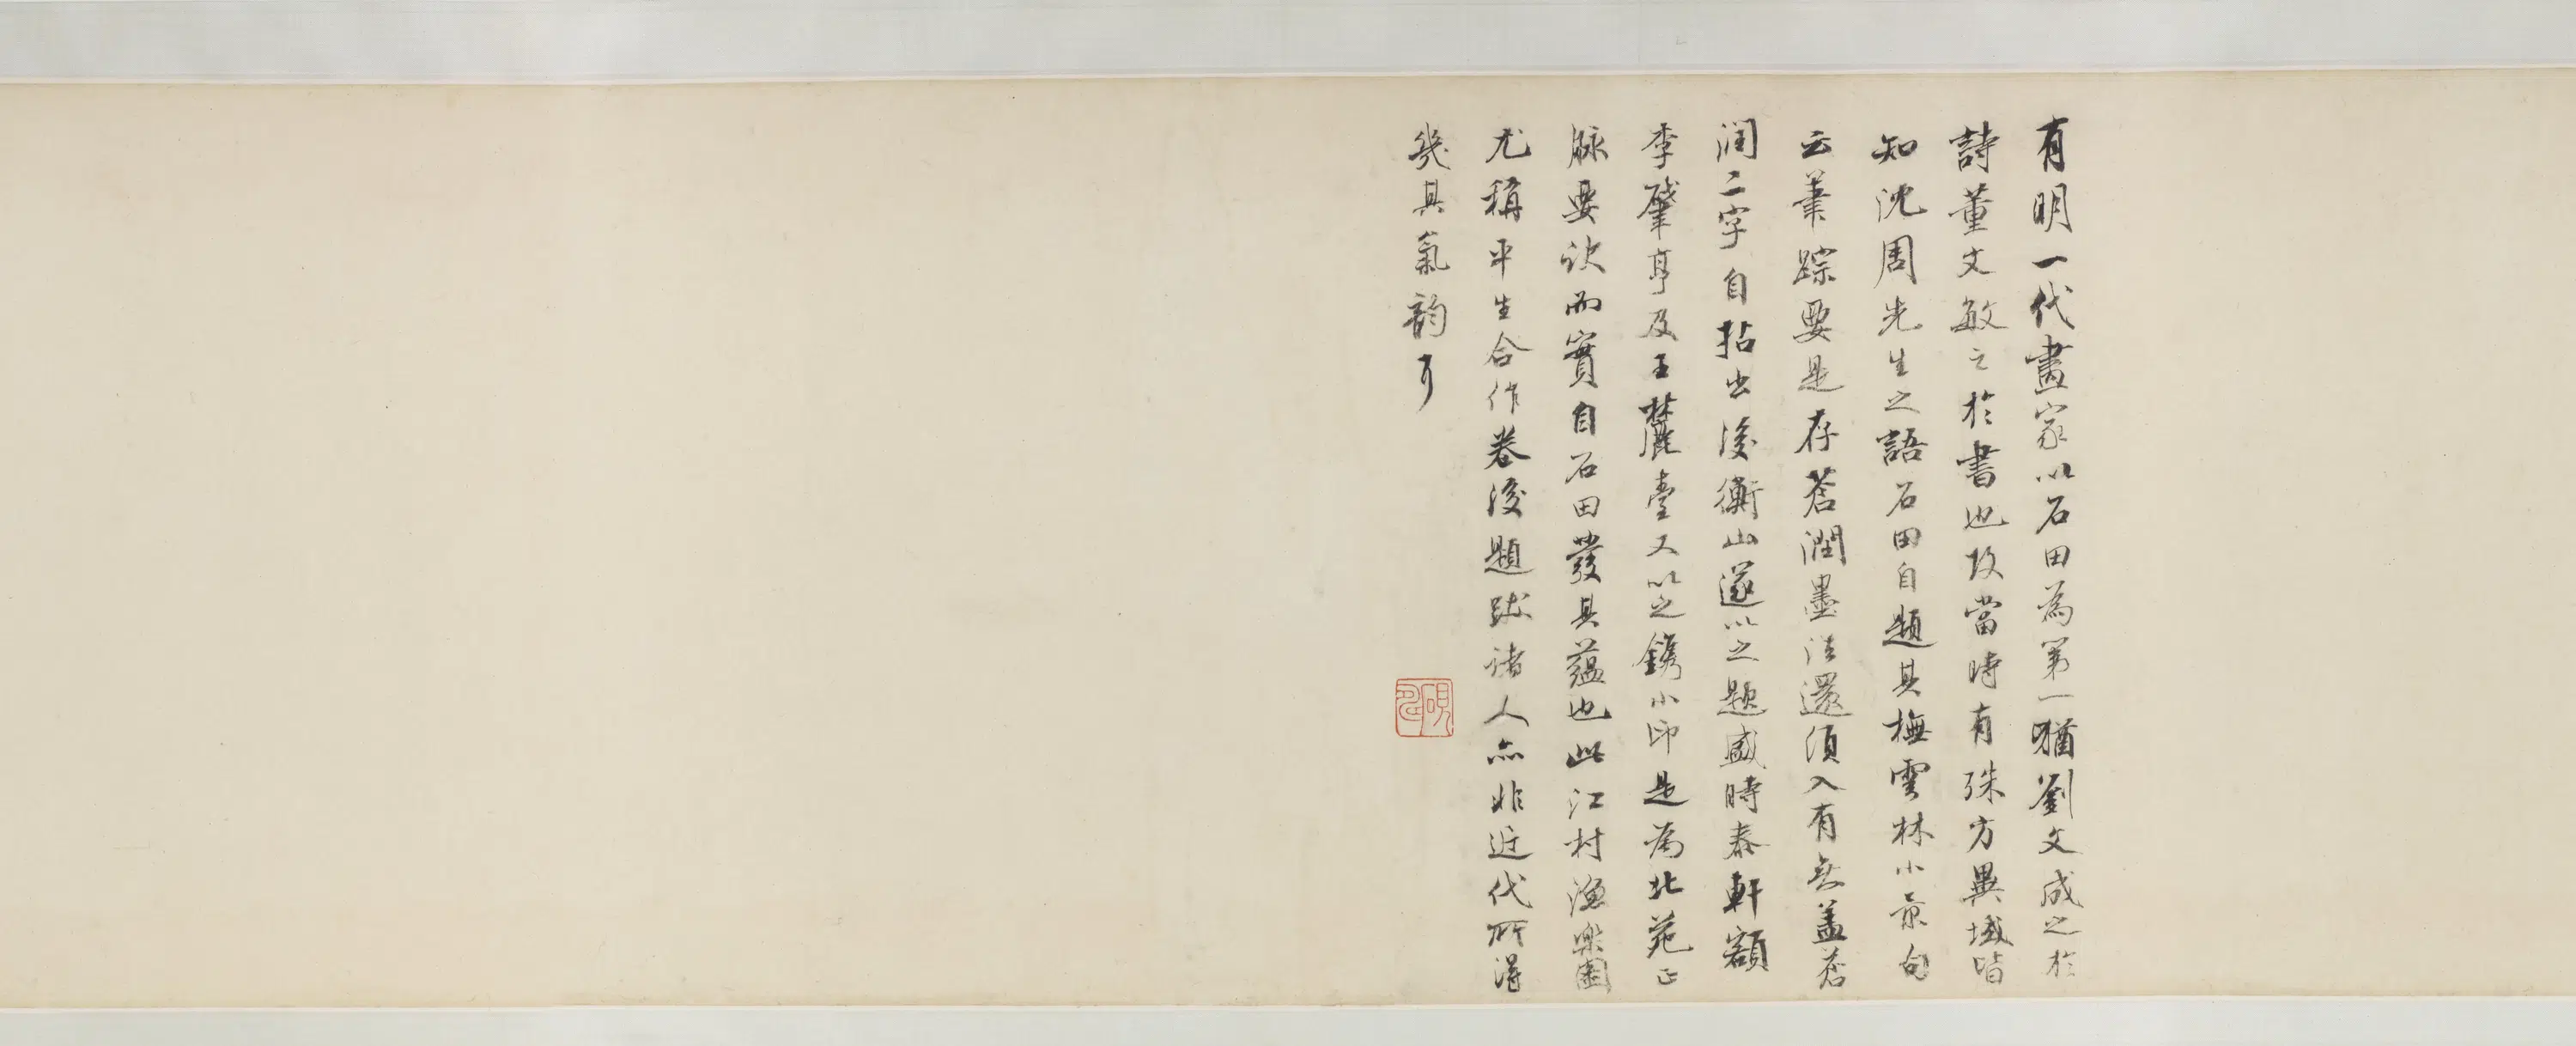 有明一代畫家以石田為第一猶劉文成之於
詩董文敏之於書也故當時有殊方異域皆
知沈周先生之語石田自題其橅雲林小景句
云筆踪要是存蒼潤墨法還須入有無蓋蒼
潤二字自拈出後衡山遂以之題盛時泰軒額
李肇亨及王麓臺又以之鐫小印是為北苑正
脉要訣而實自石田發其蘊也此江村漁樂圖
尤稱平生合作卷後題跋諸人亦非近代所得
幾其氣韵耳